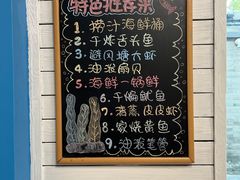 特色推荐菜
1. 捞汁海鲜桶
2. 干炸舌头鱼
3. 避风塘大虾
4. 油泼扇贝
5. 海鲜一锅鲜
6. 干煸鱿鱼
7. 清蒸皮皮虾
8. 家烧黄鱼
9. 油泼笔管